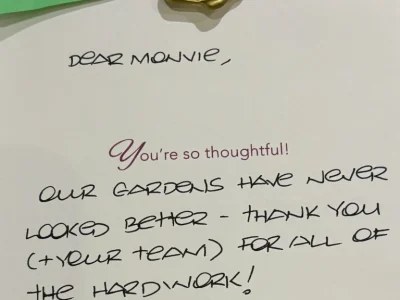 DEAR MONVIE,
You're so thoughtful!
OUR GARDENS HAVE NEVER
LOOKED BETTER - THANK YOU
(+ YOUR TEAM) FOR ALL OF
THE HARDWORK!